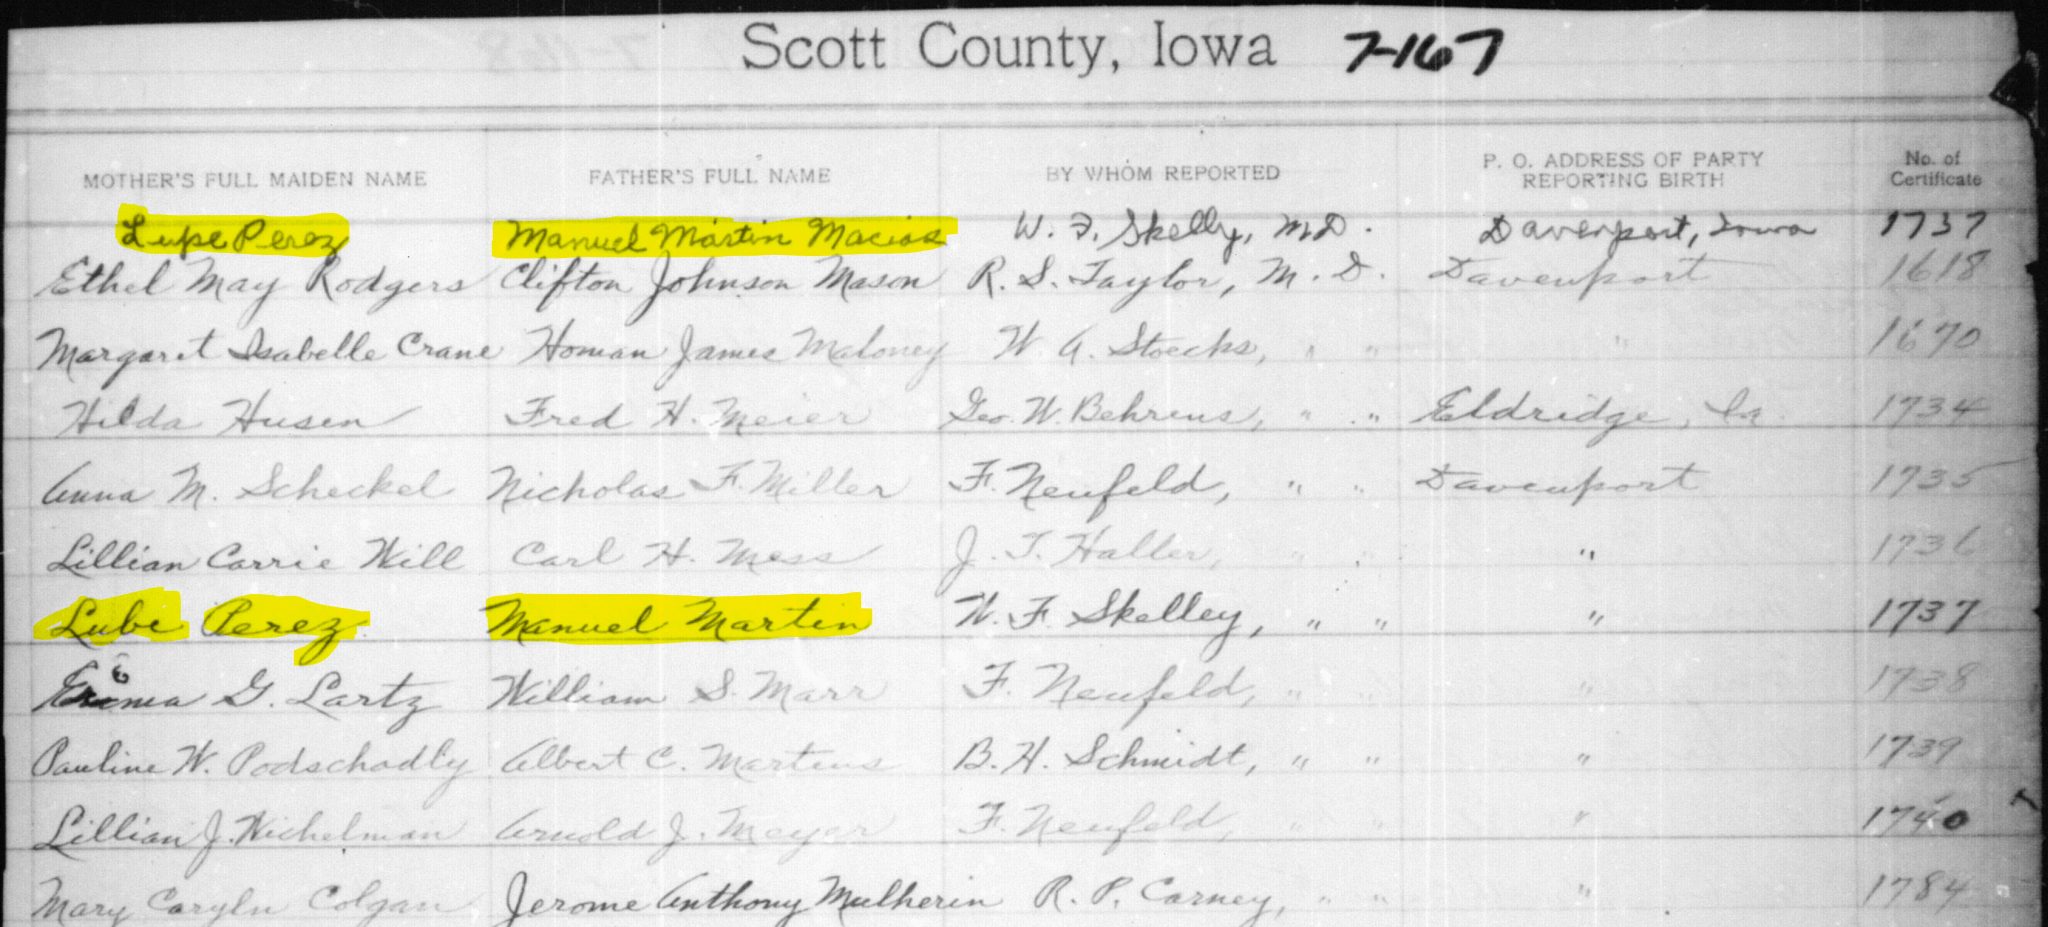 Scott County, Iowa 7-167
MOTHER'S FULL MAIDEN NAME FATHER'S FULL NAME BY WHOM REPORTED P. O. ADDRESS OF PARTY REPORTING BIRTH No. of Certificate
Lupe Perez Manuel Martin Macias W. F. Skelly, M.D. Davenport, Iowa 1737
Ethel May Rodgers Clifton Johnson Mason R. S. Taylor, M. D. Davenport 1618
Margaret Isabelle Crane Homan James Maloney W. A. Stoecks, " " " 1670
Hilda Husen Fred H. Meier Geo. W. Behrens, " " Eldridge, Ia. 1734
Anna M. Scheckel Nicholas F. Miller F. Neufeld, " " Davenport 1735
Lillian Carrie Will Carl H. Mess J. T. Haller, " " " 1736
Lube Perez Manuel Martin W. F. Skelley, " " " 1737
G. Lartz William S. Marr F. Neufeld, " " " 1738
Pauline W. Podschadly Albert C. Martens B. H. Schmidt, " " " 1739
Lillian J. Wichelman Arnold J. Meyer F. Neufeld, " " " 1740
Mary Caryln Colgan Jerome Anthony Mulherin R. P. Carney, " " " 1784